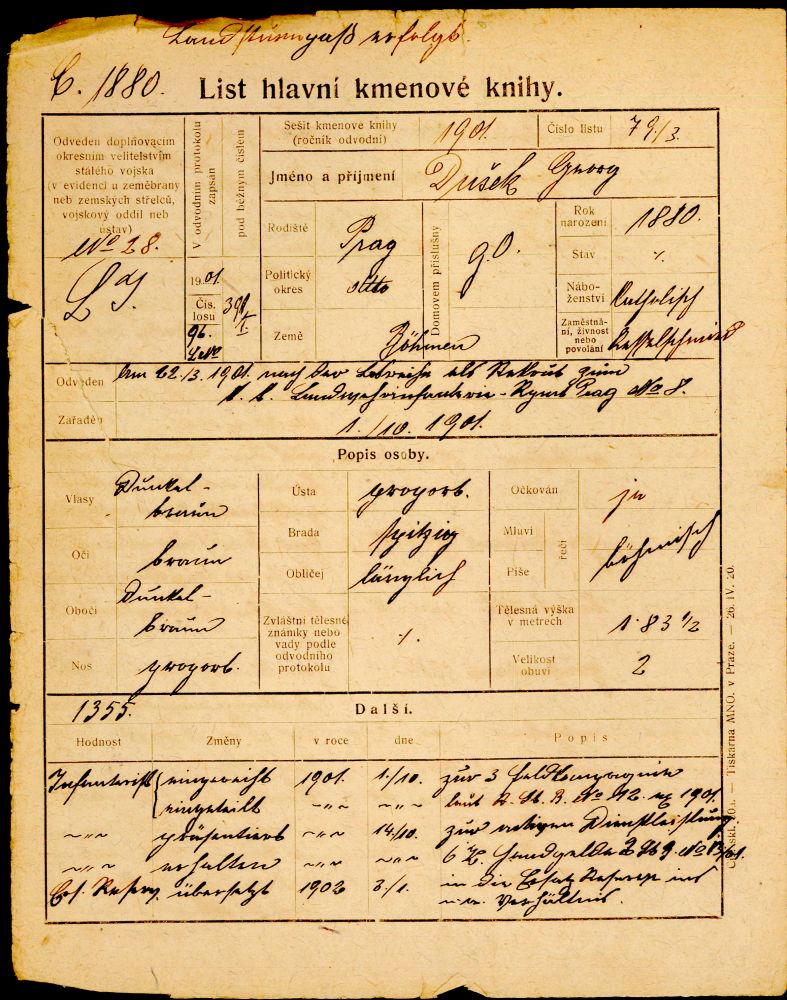 Landsturmpaß erfolgt.
C. 1880.
List hlavní kmenové knihy.
Odveden doplňovacím
okresním velitelstvím
stálého vojska
(v evidenci u zeměbrany
neb zemských střelců,
vojskový oddíl neb
ústav)
No 28.
V odvodním protokolu
zapsán
pod běžným číslem
1901.
Čís.
losu
96.
Sešit kmenové knihy
(ročník odvodní)
1901.
Číslo listu
79./3.
Jméno a příjmení
Dušek Georg
Rodiště
Prag
Politický
okres
dtto
Země
Böhmen
Domovem příslušný
Rok
narození
1880.
Stav
./.
Nábo-
ženství
Katholisch
Zaměstná-
ní, živnost
nebo
povolání
Kesselschmied
Odveden
Am 22./3. 1901. nach der Losreihe als Rekrut zum
k. k. Landwehrinfanterie-Rgmt Prag No 8.
Zařaděn
1./10. 1901.
Popis osoby.
Vlasy
Dunkel-
braun
Oči
braun
Obočí
Dunkel-
braun
Nos
proport.
Ústa
proport.
Brada
spitzig
Obličej
länglich
Zvláštní tělesné
známky nebo
vady podle
odvodního
protokolu
./.
Očkován
ja
Mluví
Píše
řečí
böhmisch
Tělesná výška
v metrech
1·83 1/2
Velikost
obuvi
2
1355.
Další.
Hodnost Změny v roce dne Popis
Infanterist eingereiht 1901. 1./10. zur 3 Feldkompagnie
eingeteilt -"- -"- laut No 112. ex 1901.
-"- präsentiert -"- 14./10. zur aktiven Dienstleistung
-"- erhalten -"- -"- 6 K Handgeld
Ers. Reserv. übersetzt 1902 3./1. in die Ersatz Reserve ins
n.a. Verhältnis.
Tiskárna MNO. v Praze. — 26. IV. 20.